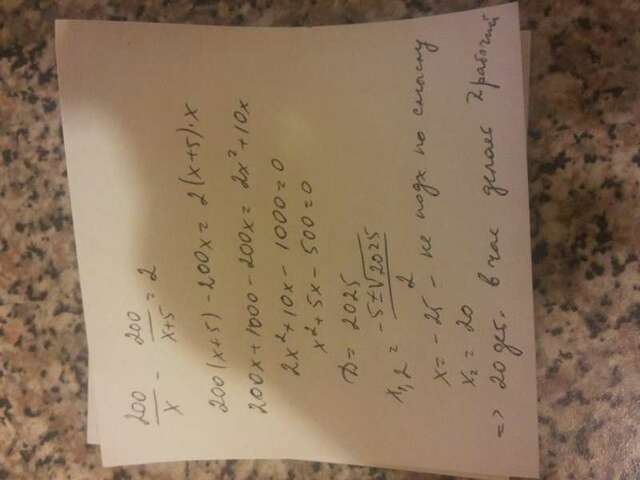 200/x - 200/x+5 = 2
200(x+5) - 200x = 2(x+5)·x
200x + 1000 - 200x = 2x² + 10x
2x² + 10x - 1000 = 0
x² + 5x - 500 = 0
D = 2025
x₁,₂ = -5±√2025/2
x = -25 - не подх по смыслу
x₂ = 20
=> 20 дет. в час делает 2 рабочий